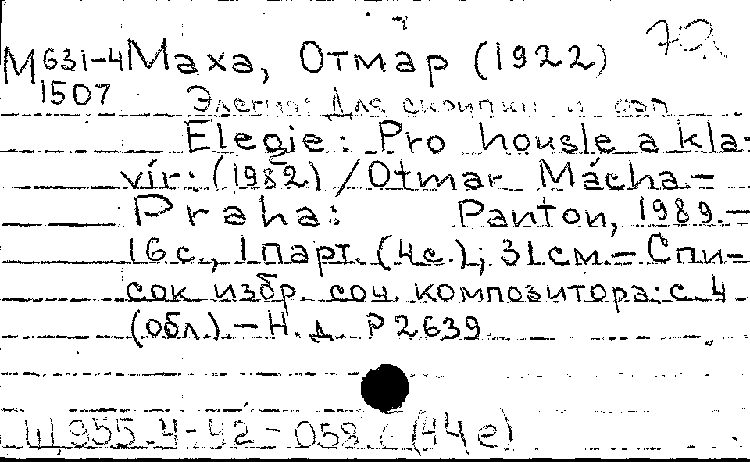 М631-4 Маха, Отмар (1922)
1507 Элегия: Для скрипки и
Elegie: Pro housle a kla-
vír: (1982) / Otmar Mácha. –
Praha: Panton, 1989. –
16 с., 1 парт. (4 с.); 31 см. – Спи-
сок избр. соч. композитора: с. 4
(обл.). – Н. д. P 2639.
Ш, 955.4-42-058. (44е)